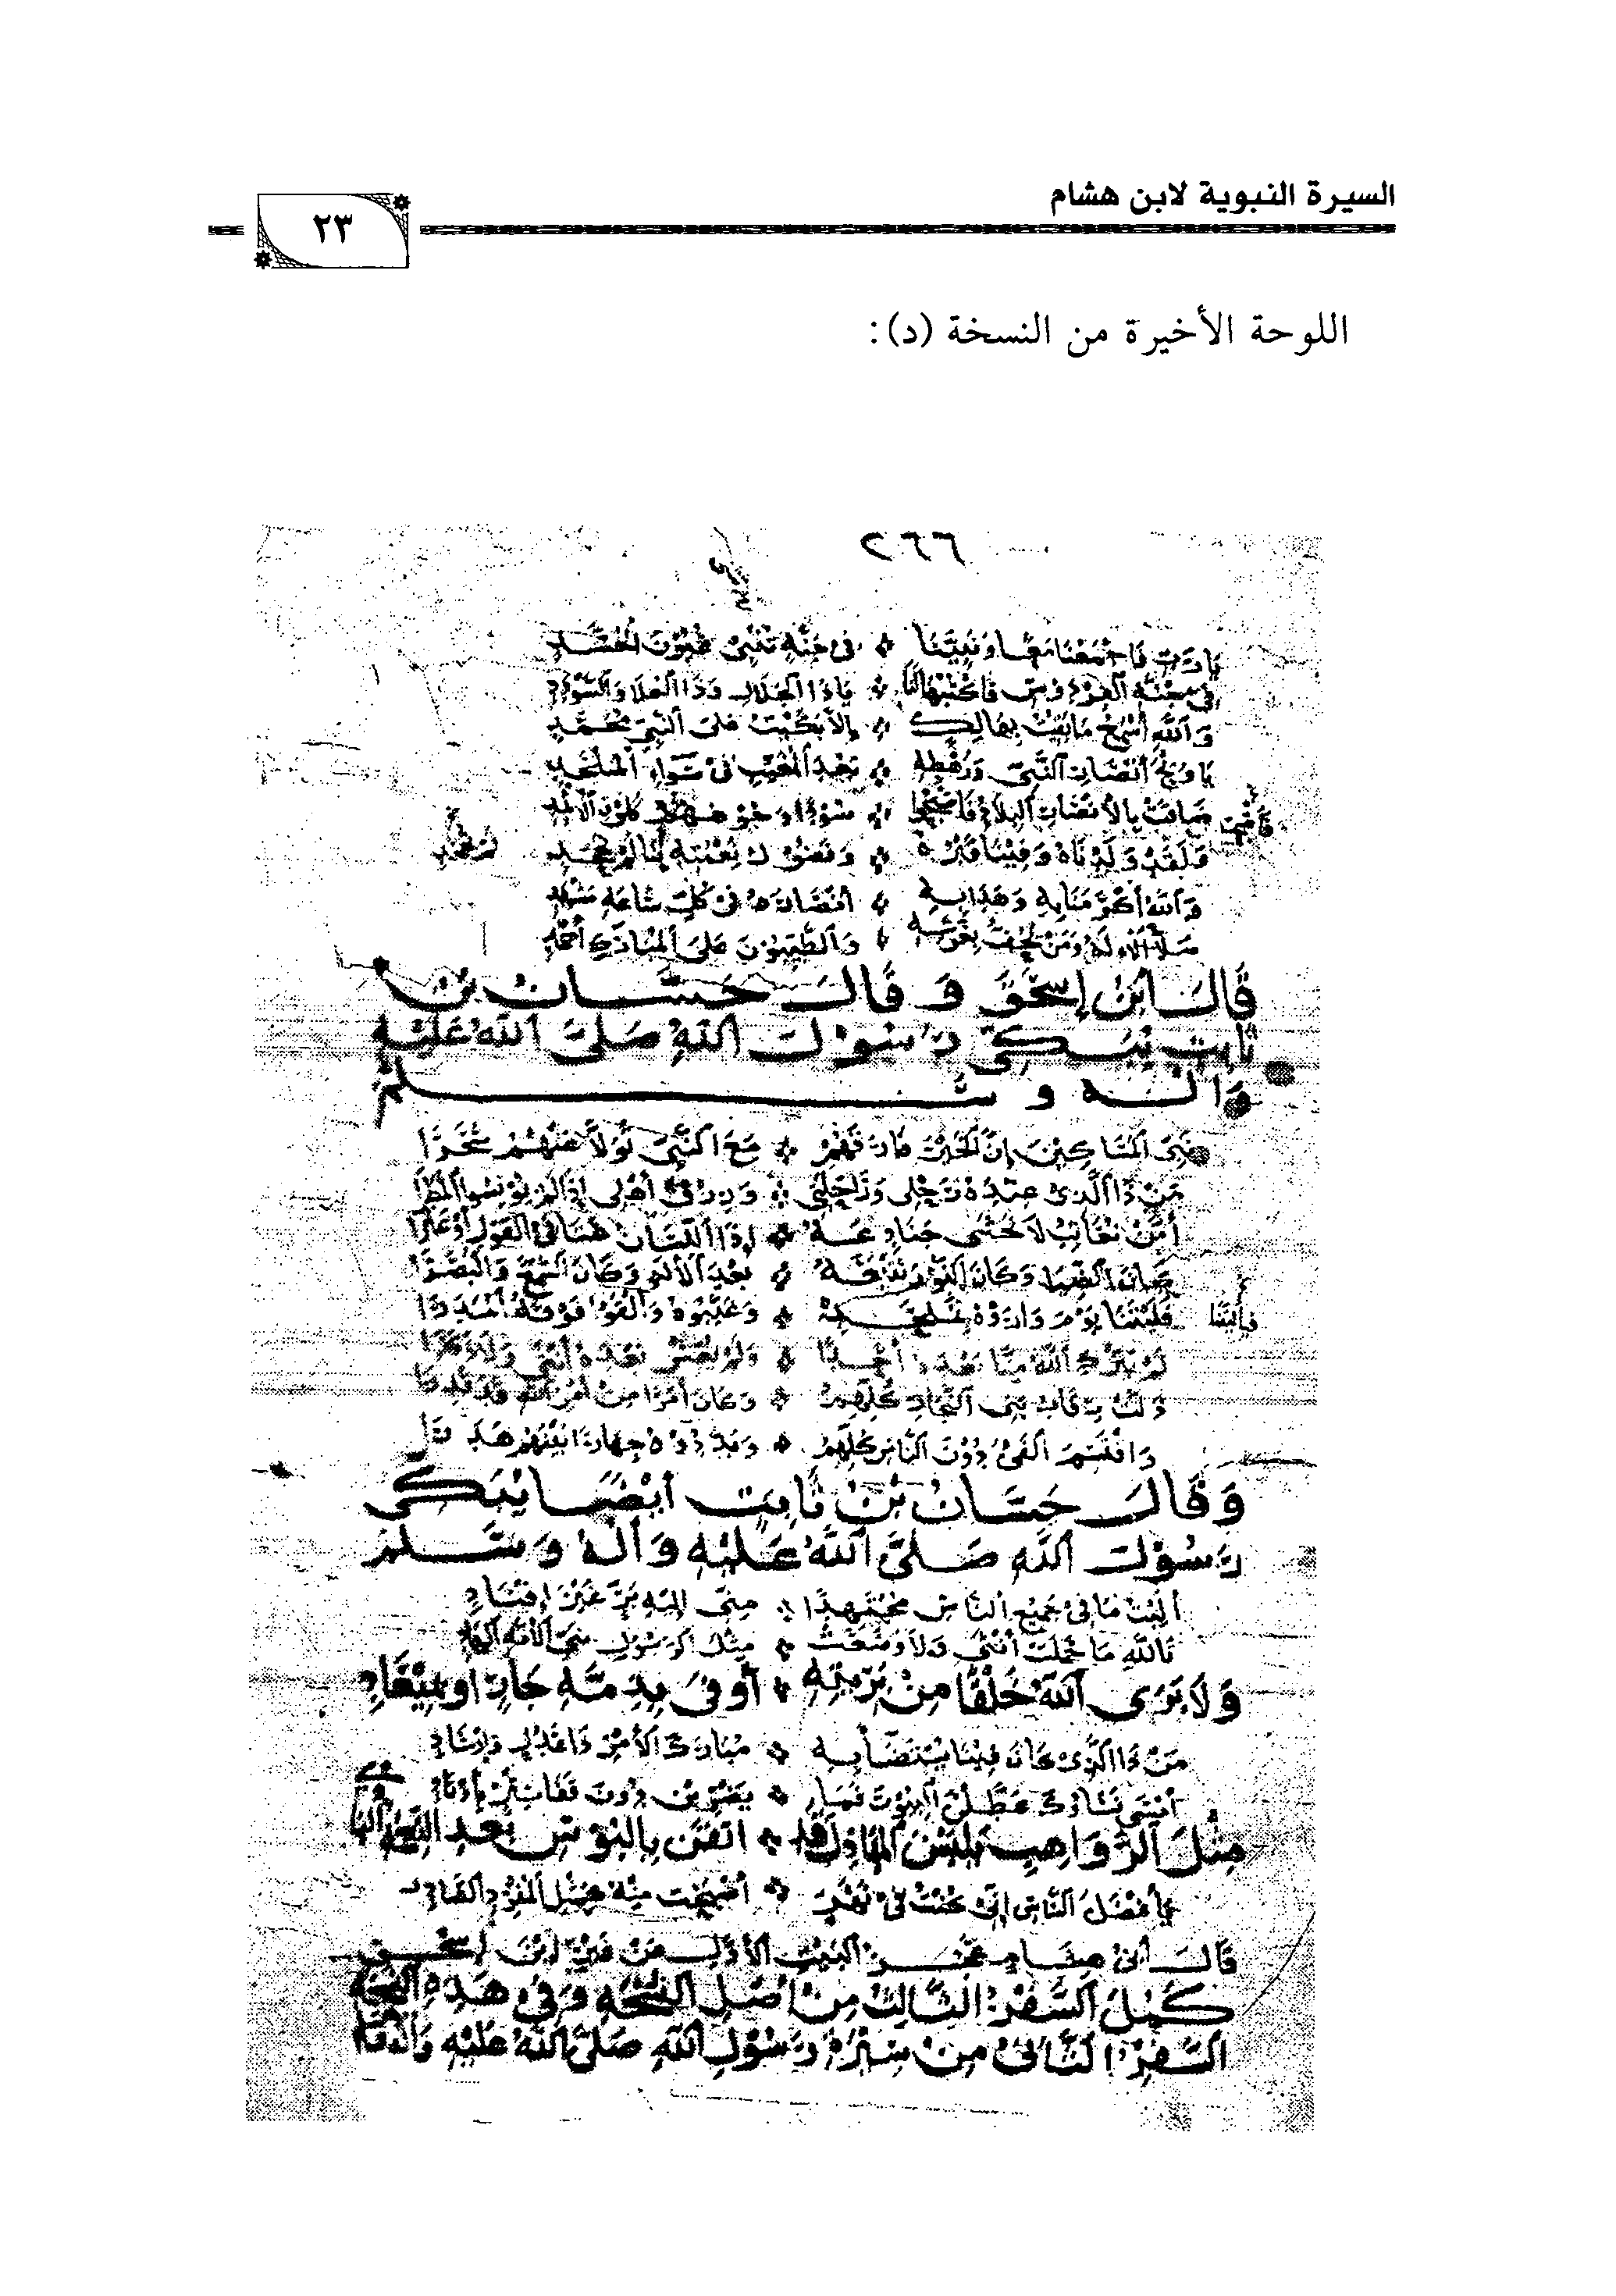 السيرة النبوية لابن هشام
٢٣
اللوحة الأخيرة من النسخة (د):
٢٦٦
يا رب فاجمعنا معا ونبينا ❖ في جنة تثني عيون الحسد
في جنة الفردوس فاكتبها لنا ❖ يا ذا الجلال وذا العلا والسودد
والله أسمع ما بقيت بهالك ❖ إلا بكيت على النبي محمد
يا ويح أنصار النبي ورهطه ❖ بعد المغيب في سواء الملحد
ضاقت بالأنصار البلاد فأصبحوا ❖ سودا وجوههم كلون الإثمد
ولقد ولدناه وفينا قبره ❖ وفضول نعمته بنا لم يجحد
والله أكرمنا به وهدى به ❖ أنصاره في كل ساعة مشهد
صلى الإله ومن يحف بعرشه ❖ والطيبون على المبارك أحمد
قال ابن إسحق وقال حسان بن
ثابت يبكي رسول الله صلى الله عليه
وآله وسلم
نبي المساكين إن الخير فارقهم ❖ مع النبي تولى عنهم سحرا
من ذا الذي عنده رحلي وراحلتي ❖ ورزق أهلي إذا لم يونسوا المطرا
أم من نعاتب لا نخشى جنادعه ❖ إذا اللسان عتا في القول أو عثرا
كان الضيا وكان النور نتبعه ❖ بعد الإله وكان السمع والبصرا
فليتنا يوم واروه بملحده ❖ وغيبوه وألقوا فوقه المدرا
لم يترك الله منا بعده أحدا ❖ ولم يعش بعده أنثى ولا ذكرا
ذلت رقاب بني النجار كلهم ❖ وكان أمرا من أمر الله قد قدرا
واقتسم الفيء دون الناس كلهم ❖ وبددوه جهارا بينهم هدرا
وقال حسان بن ثابت أيضا يبكي
رسول الله صلى الله عليه وآله وسلم
آليت ما في جميع الناس مجتهدا ❖ مني ألية بر غير إفناد
تالله ما حملت أنثى ولا وضعت ❖ مثل الرسول نبي الأمة الهادي
ولا برى الله خلقا من بريته ❖ أوفى بذمة جار أو بميعاد
من ذا الذي كان فينا يستضاء به ❖ مبارك الأمر ذا عدل وإرشاد
أمسى نساؤك عطلن البيوت فما ❖ يضربن دون قفا ستر بأوتاد
مثل الرواهب يلبسن المباذل قد ❖ أيقن بالبؤس بعد النعمة البادي
يا أفضل الناس إني كنت في نهر ❖ أصبحت منه كمثل المفرد الصادي
قال ابن هشام عجز البيت الأول عن غير ابن إسحق
كمل السفر الثالث من أصل النسخة وفي هذه النسخة
السفر الثاني من سيرة رسول الله صلى الله عليه وآله